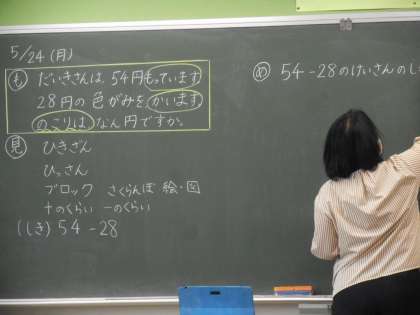 5/24 (月)
も だいきさんは、54円もっています
28円の色がみを、かいます
のこりは なん円ですか。
見 ひきざん
ひっさん
ブロック さくらんぼ 絵・図
十のくらい 一のくらい
(しき) 54 - 28
め 54 - 28のけいさんのし